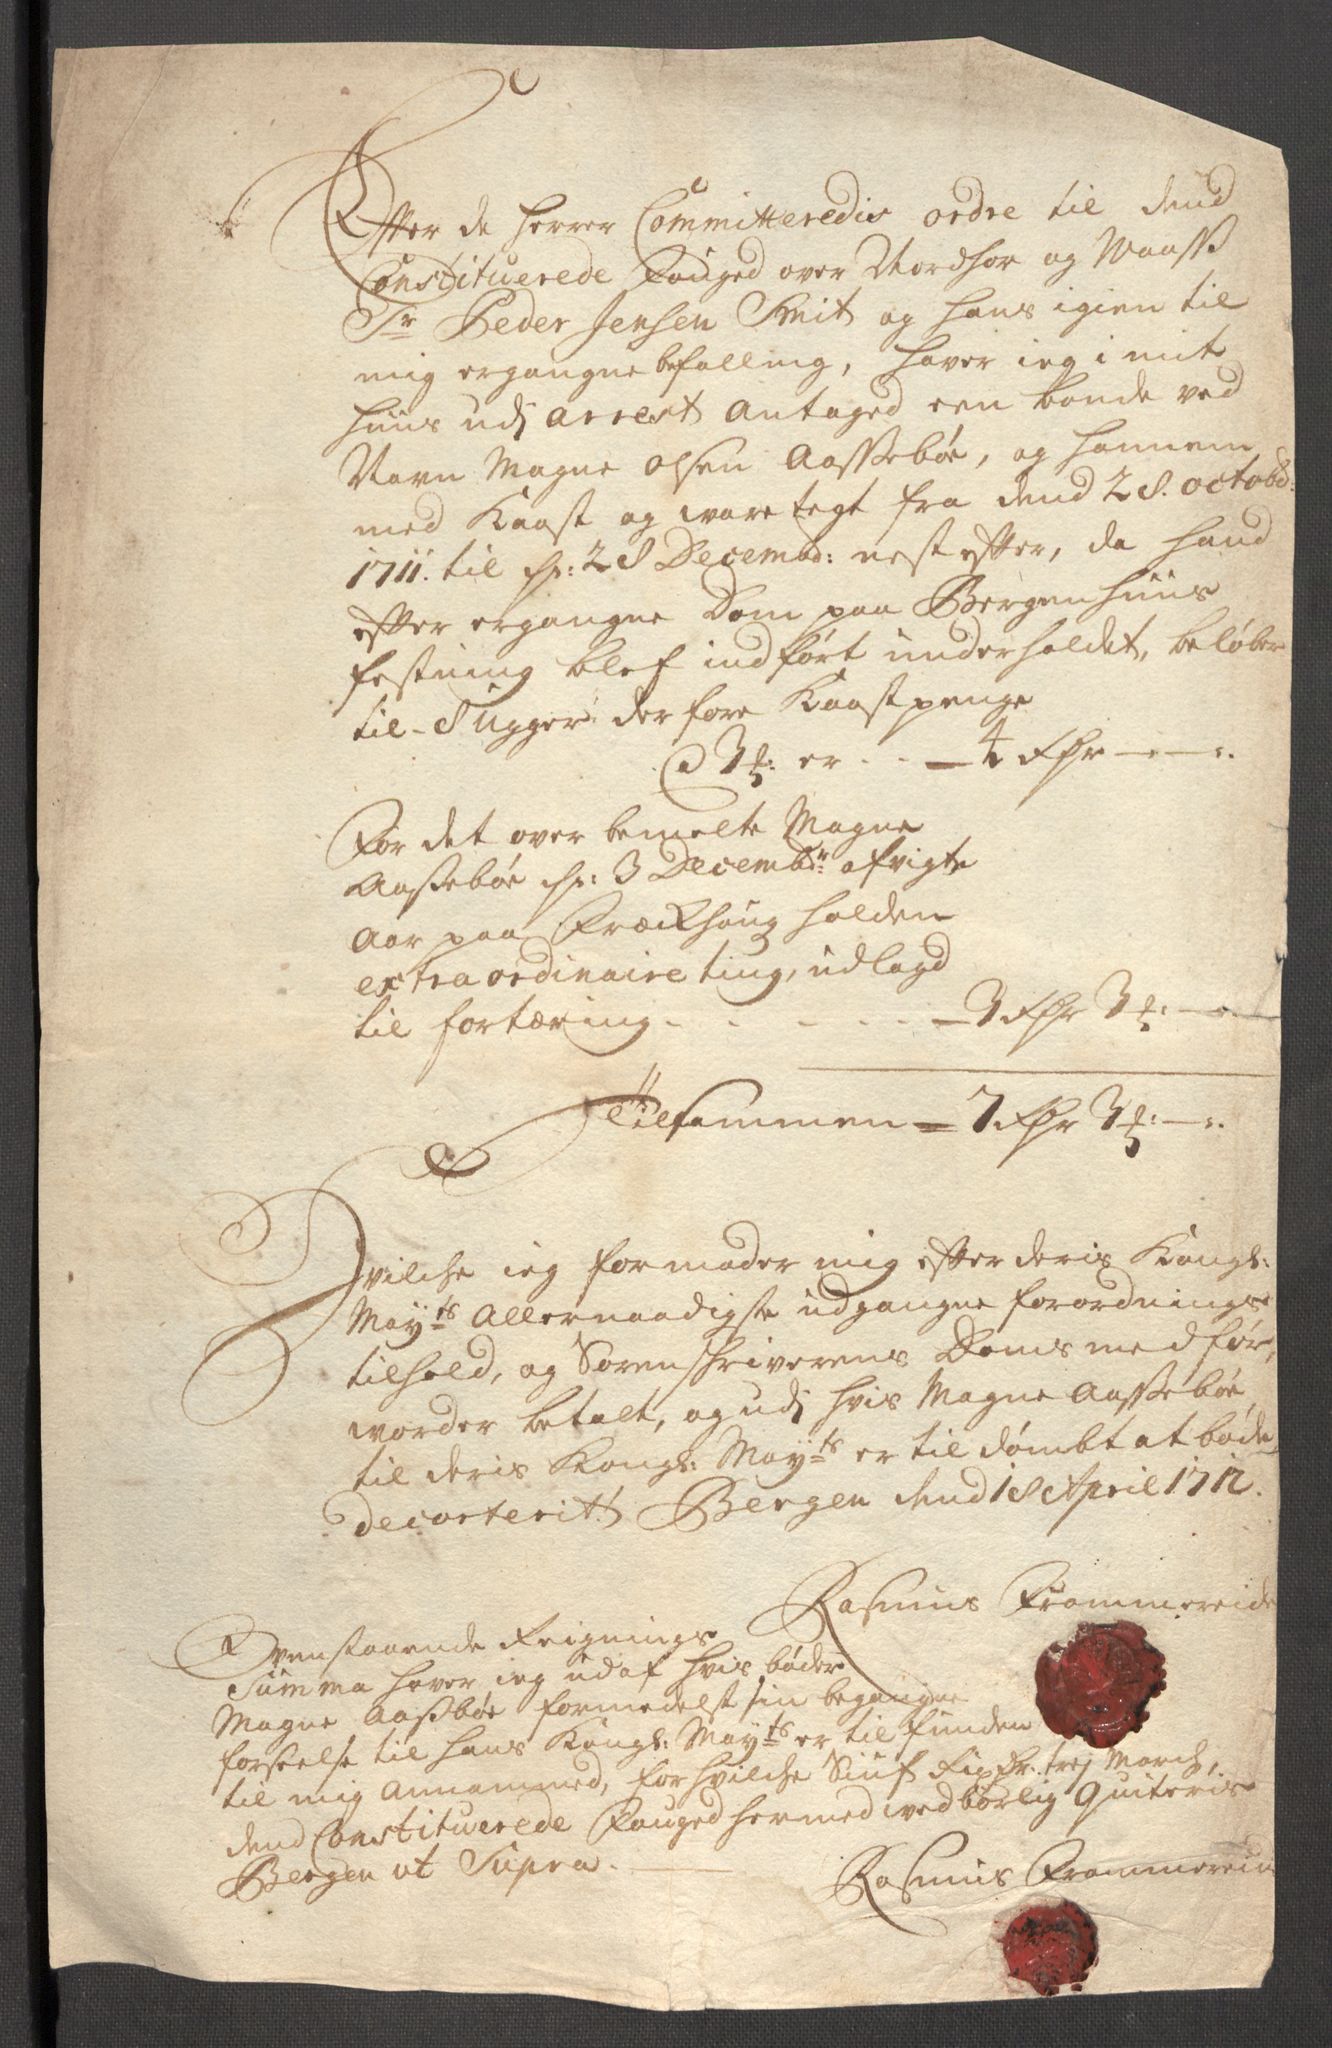 Effter de Herrer Committeredis ordre til dend
Constituerede Fouged over Nordhor og Waass
Sr Peder Jensen Smit og hans igien til
mig ergangne befalling, hafver ieg i mit
huus udj arrest antaged een bonde ved
Navn Magne Olsen Aassebøe, og hannem
med Kaast og ware tegt fra dend 28. octobr:
1711. til d: 28 Decembr: nest effter, da hand
effter ergangne Dom paa Bergenhuus
festning blef indført underholdet, beløber
til 8 Uger. derfore Kaastpenge
a 3 : er - - 4 Rdr
For det over bemelte Magne
Aassebøe d: 3 Decembr: afvigte
Aar paa Fræckhoug holden
extra ordinaire ting, udlagd
til fortæring - - - 3 Rdr 3 :
Tilsammen = 7 Rdr 3 :
Hvilche ieg formoder mig effter deris Kongl:
Mayts Allernaadigste udgangne forordnings
tilhold, og Sorenschriverens Doms medfør,
worder betalt, og udj hvis Magne Aassebøe
til deris Kongl: Mayts er til dømbt at bøde
decorterit. Bergen dend 18 April 1712.
Rasmus Frammereide
Ovenstaaende Reignings
Summa hafver ieg udaf hvis bøder
Magne Aassbøe formedelst sin begangne
forseelse til hans Kongl: Mayts er til funden
til mig annammed, for hvilche Siuf March,
dend Constituerede Fouged hermed wedbørlig Quiteris
Bergen ut Supra.
Rasmus Frammereide